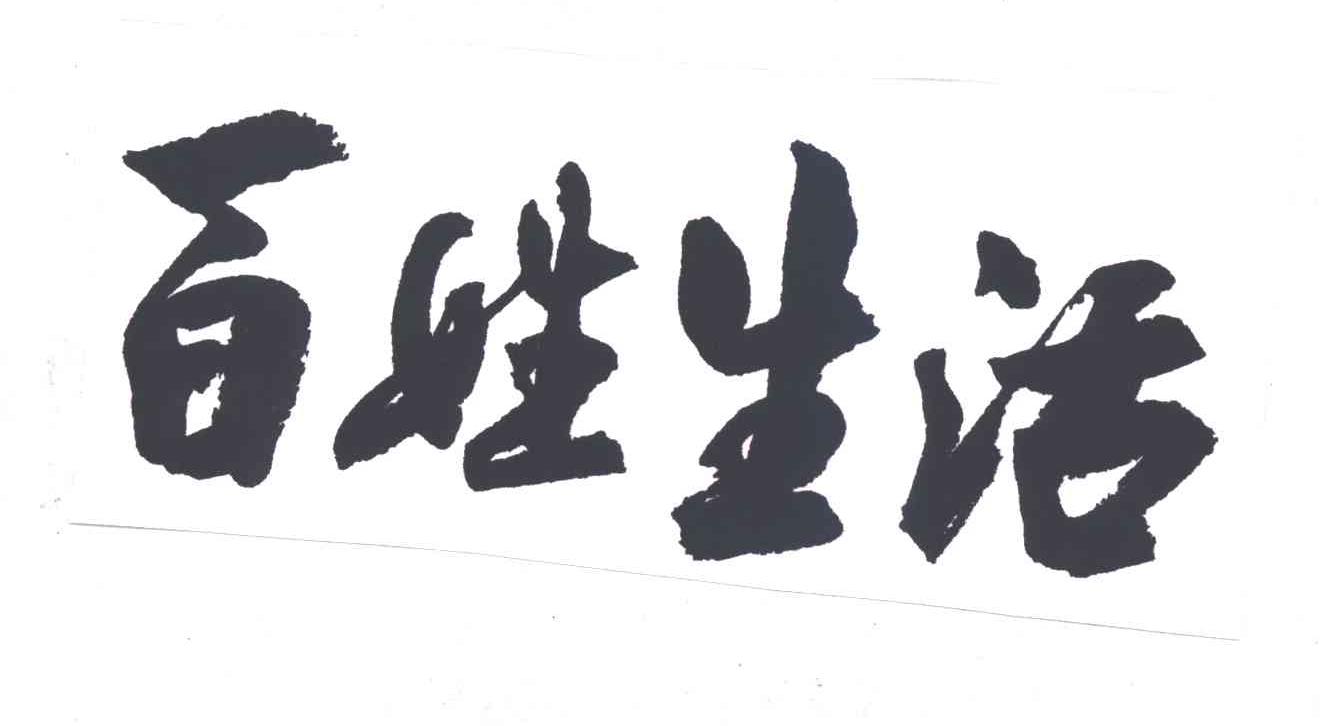 百姓生活